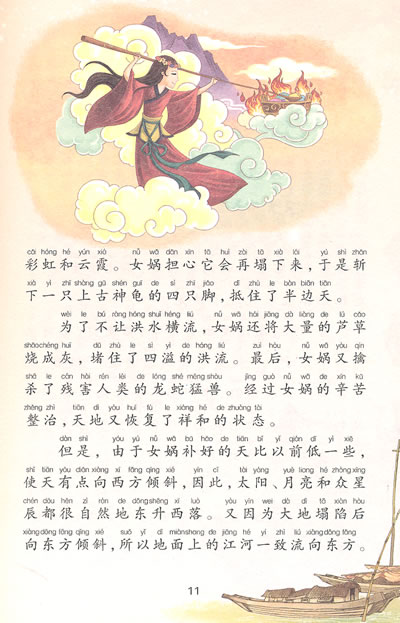 cǎi hóng hé yún xiá nǚ wā dān xīn tā huì zài tā xià lái yú shì zhǎn
彩虹和云霞。女娲担心它会再塌下来,于是斩
xià yì zhī shàng gǔ shén guī de sì zhī jiǎo dǐ zhù le bàn biān tiān
下一只上古神龟的四只脚,抵住了半边天。
wèi le bú ràng hóng shuǐ héng liú nǚ wā hái jiāng dà liàng de lú cǎo
为了不让洪水横流,女娲还将大量的芦草
shāo chéng huī dǔ zhù le sì yì de hóng liú zuì hòu nǚ wā yòu qín
烧成灰,堵住了四溢的洪流。最后,女娲又擒
shā le cán hài rén lèi de lóng shé měng shòu jīng guò nǚ wā de xīn kǔ
杀了残害人类的龙蛇猛兽。经过女娲的辛苦
zhěng zhì tiān dì yòu huī fù le xiáng hé de zhuàng tài
整治,天地又恢复了祥和的状态。
dàn shì yóu yú nǚ wā bǔ hǎo de tiān bǐ yǐ qián dī yì xiē
但是,由于女娲补好的天比以前低一些,
shǐ tiān yǒu diǎn xiàng xī fāng qīng xié yīn cǐ tài yáng yuè liang hé zhòng xīng
使天有点向西方倾斜,因此,太阳、月亮和众星
chén dōu hěn zì rán de dōng shēng xī luò yòu yīn wèi dà dì tā xiàn hòu
辰都很自然地东升西落。又因为大地塌陷后
xiàng dōng fāng qīng xié suǒ yǐ dì miàn shang de jiāng hé yí zhì liú xiàng dōng fāng
向东方倾斜,所以地面上的江河一致流向东方。
11